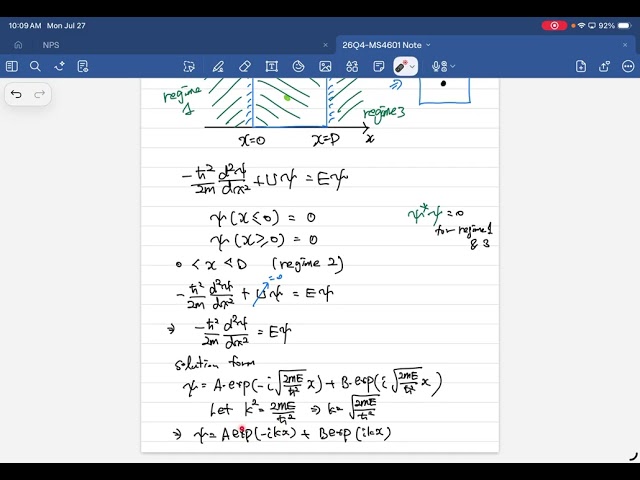 10:09 AM Mon Jul 27
92%
NPS
26Q4-MS4601 Note
regime 1
regime 3
x=0
x=D
x
-ħ²/2m d²ψ/dx² + Uψ = Eψ
ψ(x≤0) = 0
ψ*ψ=0
ψ(x≥0) = 0
for regime 1 & 3
0 < x < D (regime 2)
-ħ²/2m d²ψ/dx² + Uψ = Eψ
=0
⇒ -ħ²/2m d²ψ/dx² = Eψ
solution form
ψ = A·exp(-i√(2mE/ħ²) x) + B·exp(i√(2mE/ħ²) x)
Let k² = 2mE/ħ² ⇒ k = √(2mE/ħ²)
⇒ ψ = A exp(-ikx) + B exp(ikx)